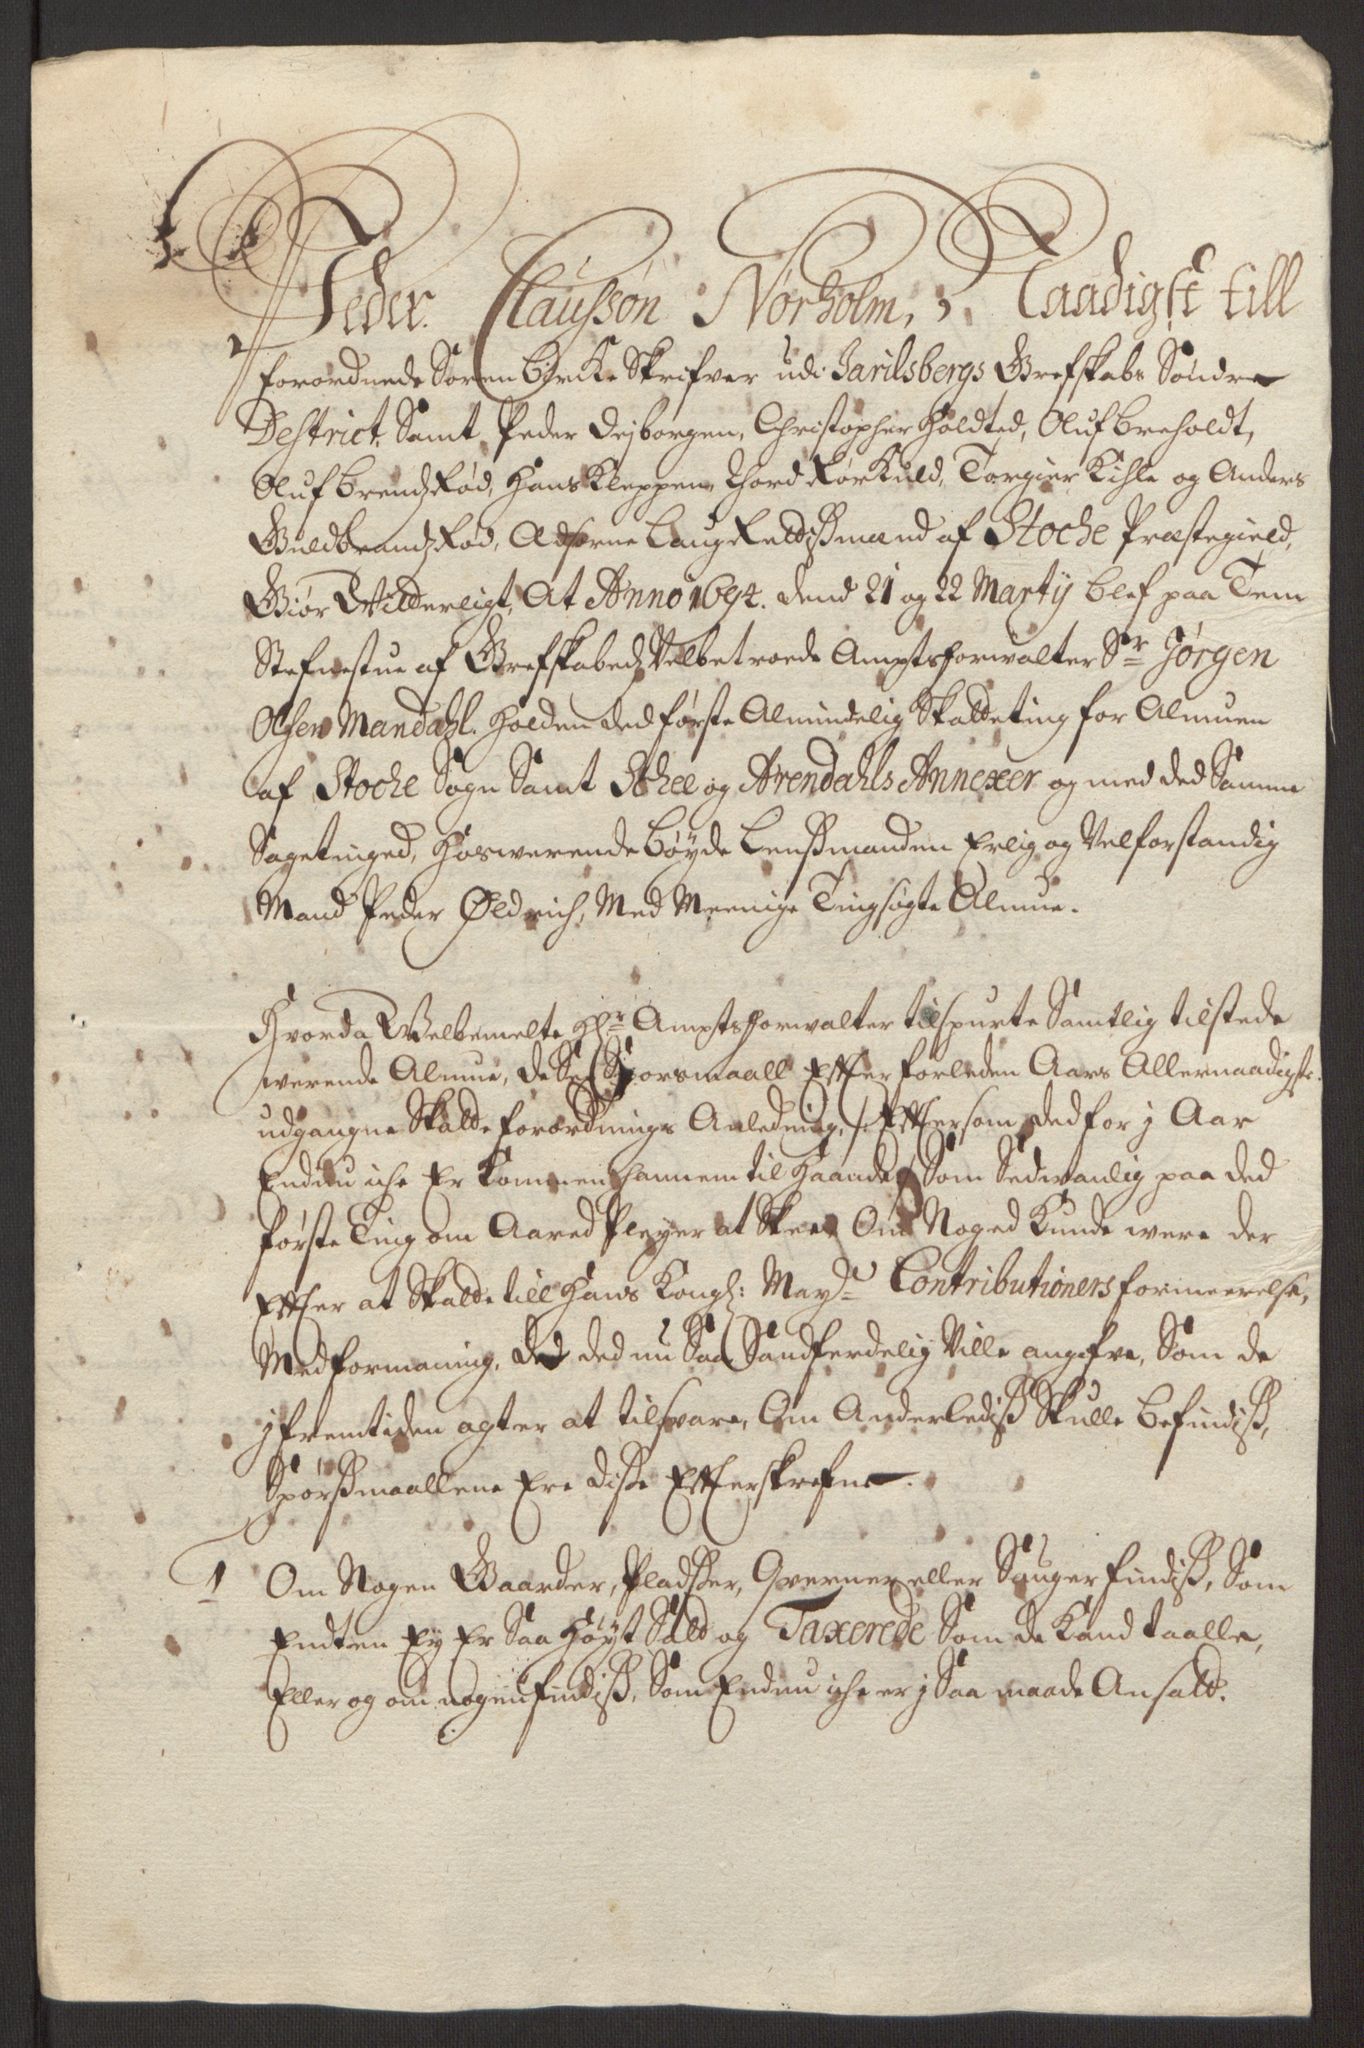 Peder Claussøn Nørholm, Naadigst till
forordnede Soren birke Skrifver udi Jarilsbergs Grefskabs Søndre
District, Samt Peder Dejborgen, Christopher Holdted, Oluf breholdt,
Oluf brendsRød, Hans Kleppen, Thord RørKuld, Torgier Kihle og Anders
GuldbrandsRød, Edsorne LaugRettissmænd af Stoche Præstegield,
Giør Witterligt, At Anno 1694. dend 21 og 22 Marty blef paa Tem
Stefnestue af Grefskabeds Velbetroede Amptsforwalter Sr Jørgen
Olsen Mandahl. Holden ded første Almindelig Skatteting for Almuen
af Stoche Sogn Samt Schee og Arendahls Annexer og med ded Samme
Sageting, Hoswerende bøyde Lenssmanden Erlig og Velforstandig
Mand Peder Øldrich, Med Meenige Tingsøgte Almue.
Hvorda Welbemelte Hr Amptsforwalter tilspurte Samtlig tilstede
werende Almue, de Spørsmaall Effter forleden Aars Allernaadigste
udgangne Skatteforordnings Anledning, /: Effter som ded for j Aar
Endnu iche Er kommen hannem til Haande :/ Som Sedwanlig paa ded
første Ting om Aared Pleyer at Skee, Om Noged kunde were der
Effter at Skatte till Hans Kongl: Mayts Contributioners formeerelse,
Med formaning, ded ded nu Saa Sandferdelig Ville angifve, Som de
j fremtiden agter at tilsvare, Om Anderlediss Skulle befindiss,
Spørssmaallene Ere disse Effterskrefne.
1 Om Nogen Gaarder, Pladsser, Qverner eller Sauger findiss, Som
Endten Ey Er Saa høyt Satt og Taxerede Som de Kand taalle,
Eller og om nogen findiss, Som Endnu iche er j Saa maade Ansatt.